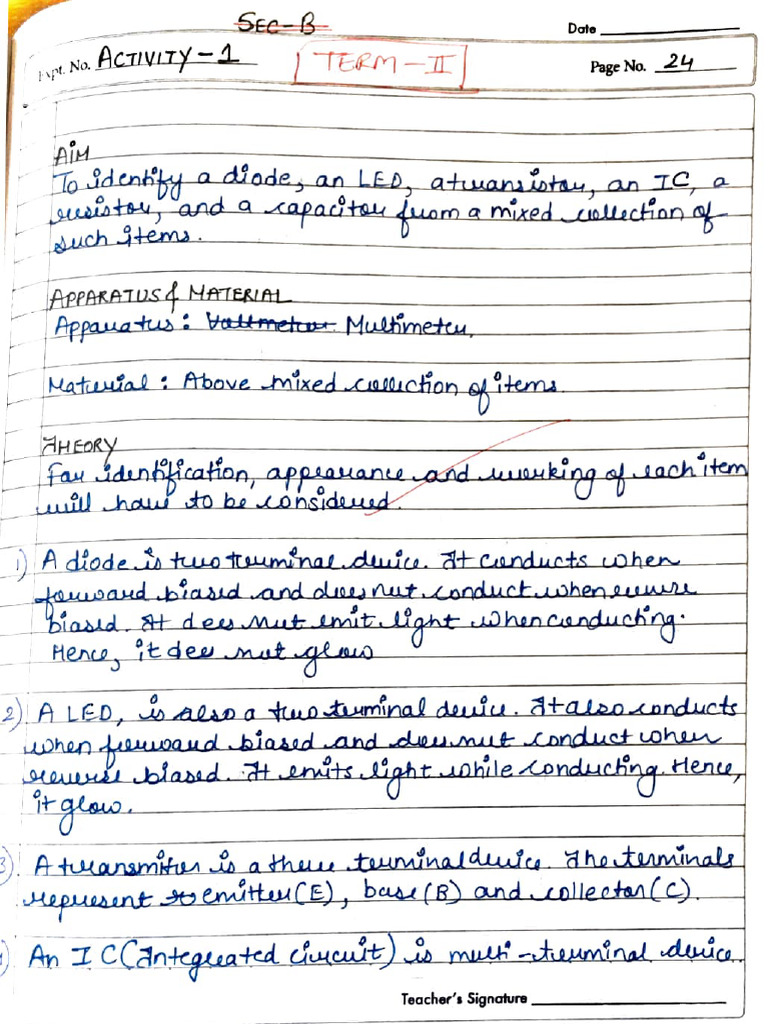 SEC-B
Date
Expt. No. ACTIVITY-1
TERM-II
Page No. 24
AIM
To identify a diode, an LED, a transistor, an IC, a
resistor, and a capacitor from a mixed collection of
such items.
APPARATUS & MATERIAL
Apparatus: Voltmeter Multimeter.
Material: Above mixed collection of items.
THEORY
For identification, appearance and working of each item
will have to be considered.
1) A diode is two terminal device. It conducts when
forward biased and does not conduct when reverse
biased. It does not emit light when conducting.
Hence, it does not glow
2) A LED, is also a two terminal device. It also conducts
when forward biased and does not conduct when
reverse biased. It emits light while conducting. Hence,
it glow.
3) A transmitter is a three terminal device. The terminals
represent to emitter(E), base(B) and collector(C).
4) An IC (Integreated circuit) is multi-terminal device.
Teacher's Signature